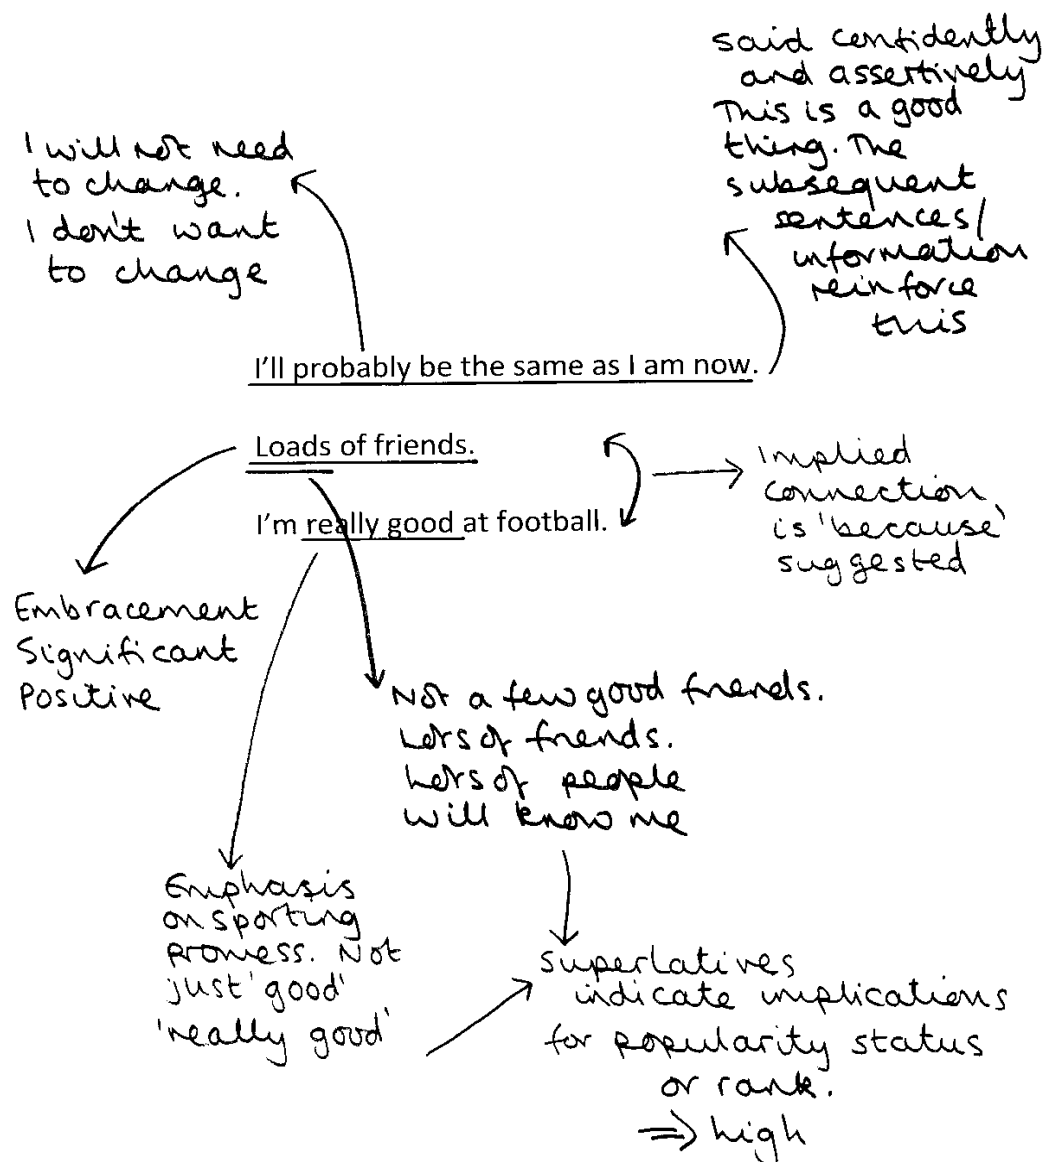 said confidently
and assertively
This is a good
thing. The
subsequent
sentences/
information
reinforce
this
I will not need
to change.
I don't want
to change
I'll probably be the same as I am now.
Loads of friends.
I'm really good at football.
Implied
connection
is 'because'
suggested
Embracement
Significant
Positive
Not a few good friends.
Lots of friends.
Lots of people
will know me
Emphasis
on sporting
prowess. Not
just 'good'
'really good'
superlatives
indicate implications
for popularity status
or rank.
⇒ high